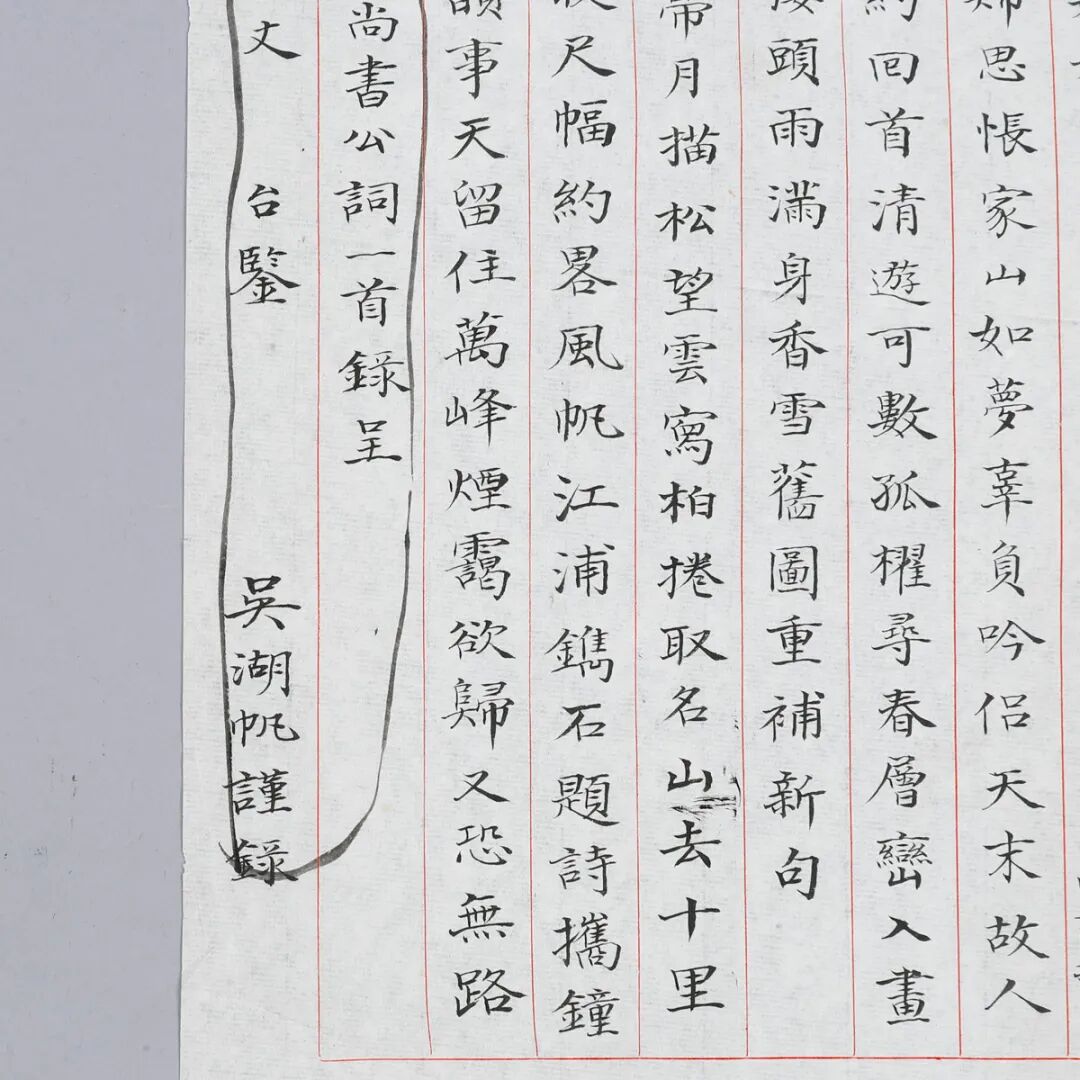 思悵家山如夢辜負吟侶天末故人
回首清遊可數孤櫂尋春層巒入畫
頭雨滿身香雪舊圖重補新句
月描松望雲寫柏捲取名山去十里
尺幅約畧風帆江浦鐫石題詩攜鐘
事天留住萬峰煙靄欲歸又恐無路
尚書公詞一首錄呈
丈 台鑒 吳湖帆謹錄